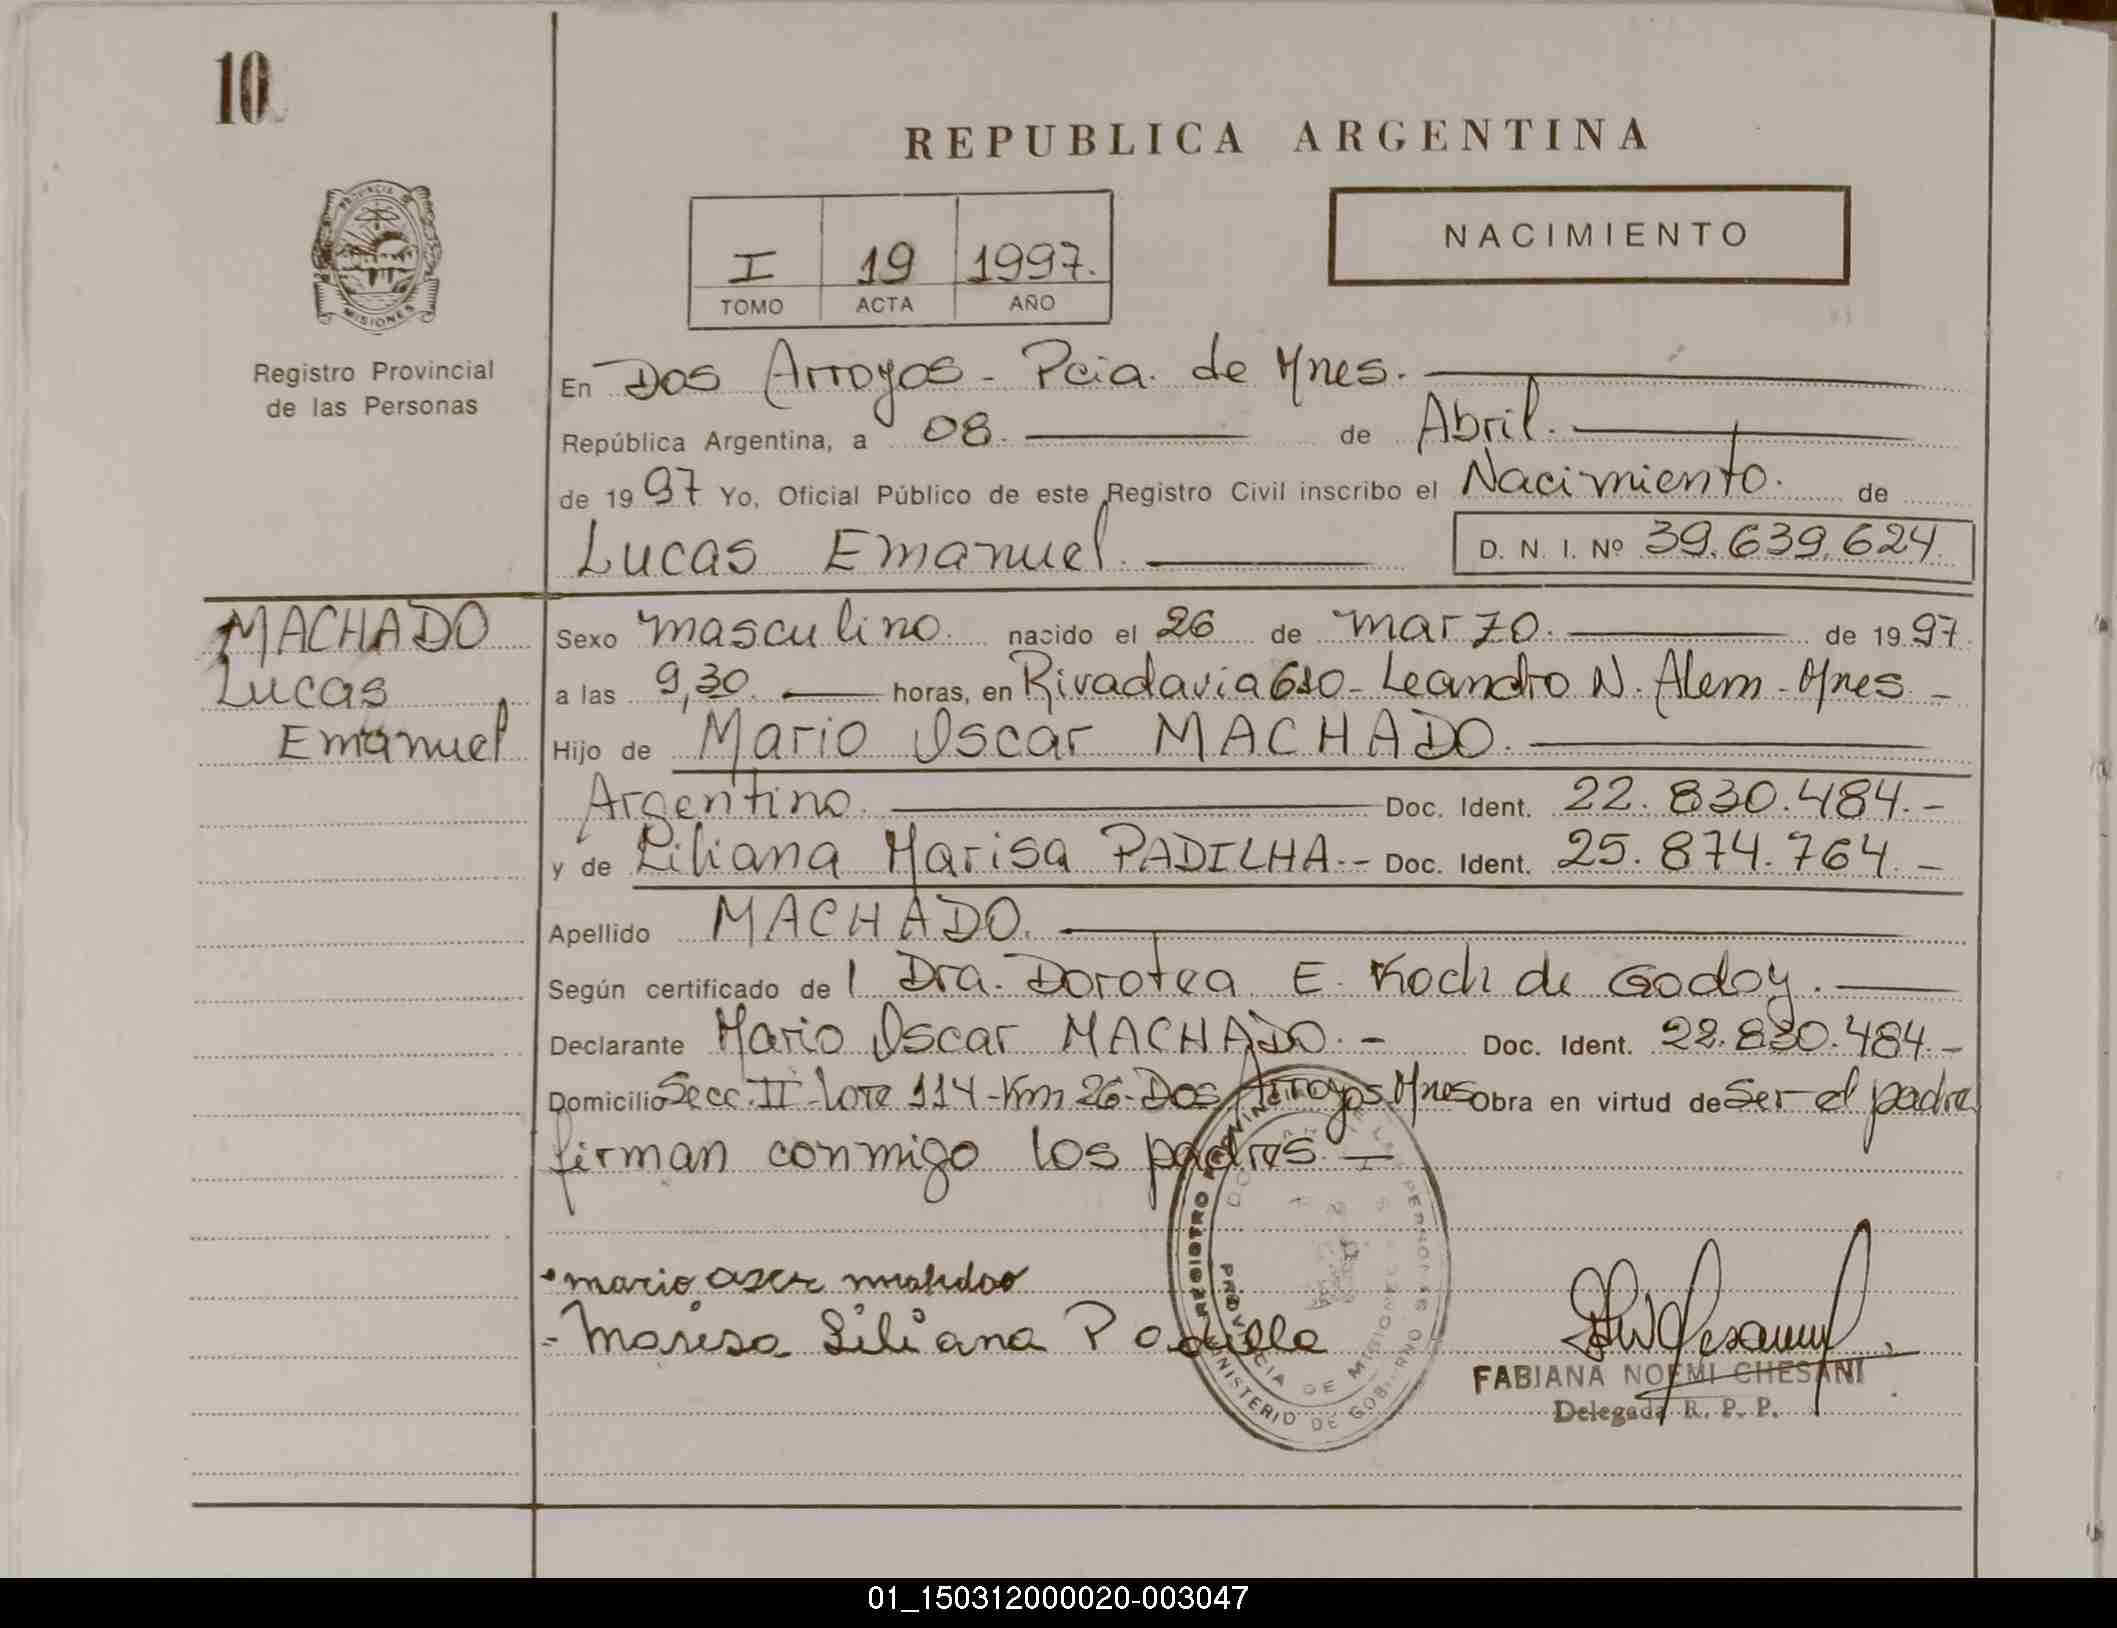 10
REPUBLICA ARGENTINA
NACIMIENTO
I 19 1997.
TOMO ACTA AÑO
PROVINCIA DE MISIONES
Registro Provincial
de las Personas
En Dos Arroyos - Pcia. de Mnes.
República Argentina, a 08. de Abril.
de 1997 Yo, Oficial Público de este Registro Civil inscribo el Nacimiento. de
Lucas Emanuel. D. N. I. Nº 39.639.624
MACHADO
Lucas
Emanuel
Sexo masculino. nacido el 26 de marzo. de 1997
a las 9,30. horas, en Rivadavia 610 - Leandro N. Alem - Mnes -
Hijo de Mario Oscar MACHADO.
Argentino. Doc. Ident. 22.830.484.-
y de Liliana Marisa PADILHA.-- Doc. Ident. 25.874.764.-
Apellido MACHADO.
Según certificado de l Dra. Dorotea E. Koch de Godoy.
Declarante Mario Oscar MACHADO.- Doc. Ident. 22.830.484.-
Domicilio Secc. II - Lote 114 - Km 26 - Dos Arroyos Mnes Obra en virtud de Ser el padre
firman conmigo los padres.-
mario machdao
- Marisa Liliana Padilla
REGISTRO PROVINCIAL DE LAS PERSONAS
PROVINCIA DE MISIONES
MINISTERIO DE GOBIERNO
FABIANA NOEMI CHESANI
Delegada R. P. P.
01_150312000020-003047